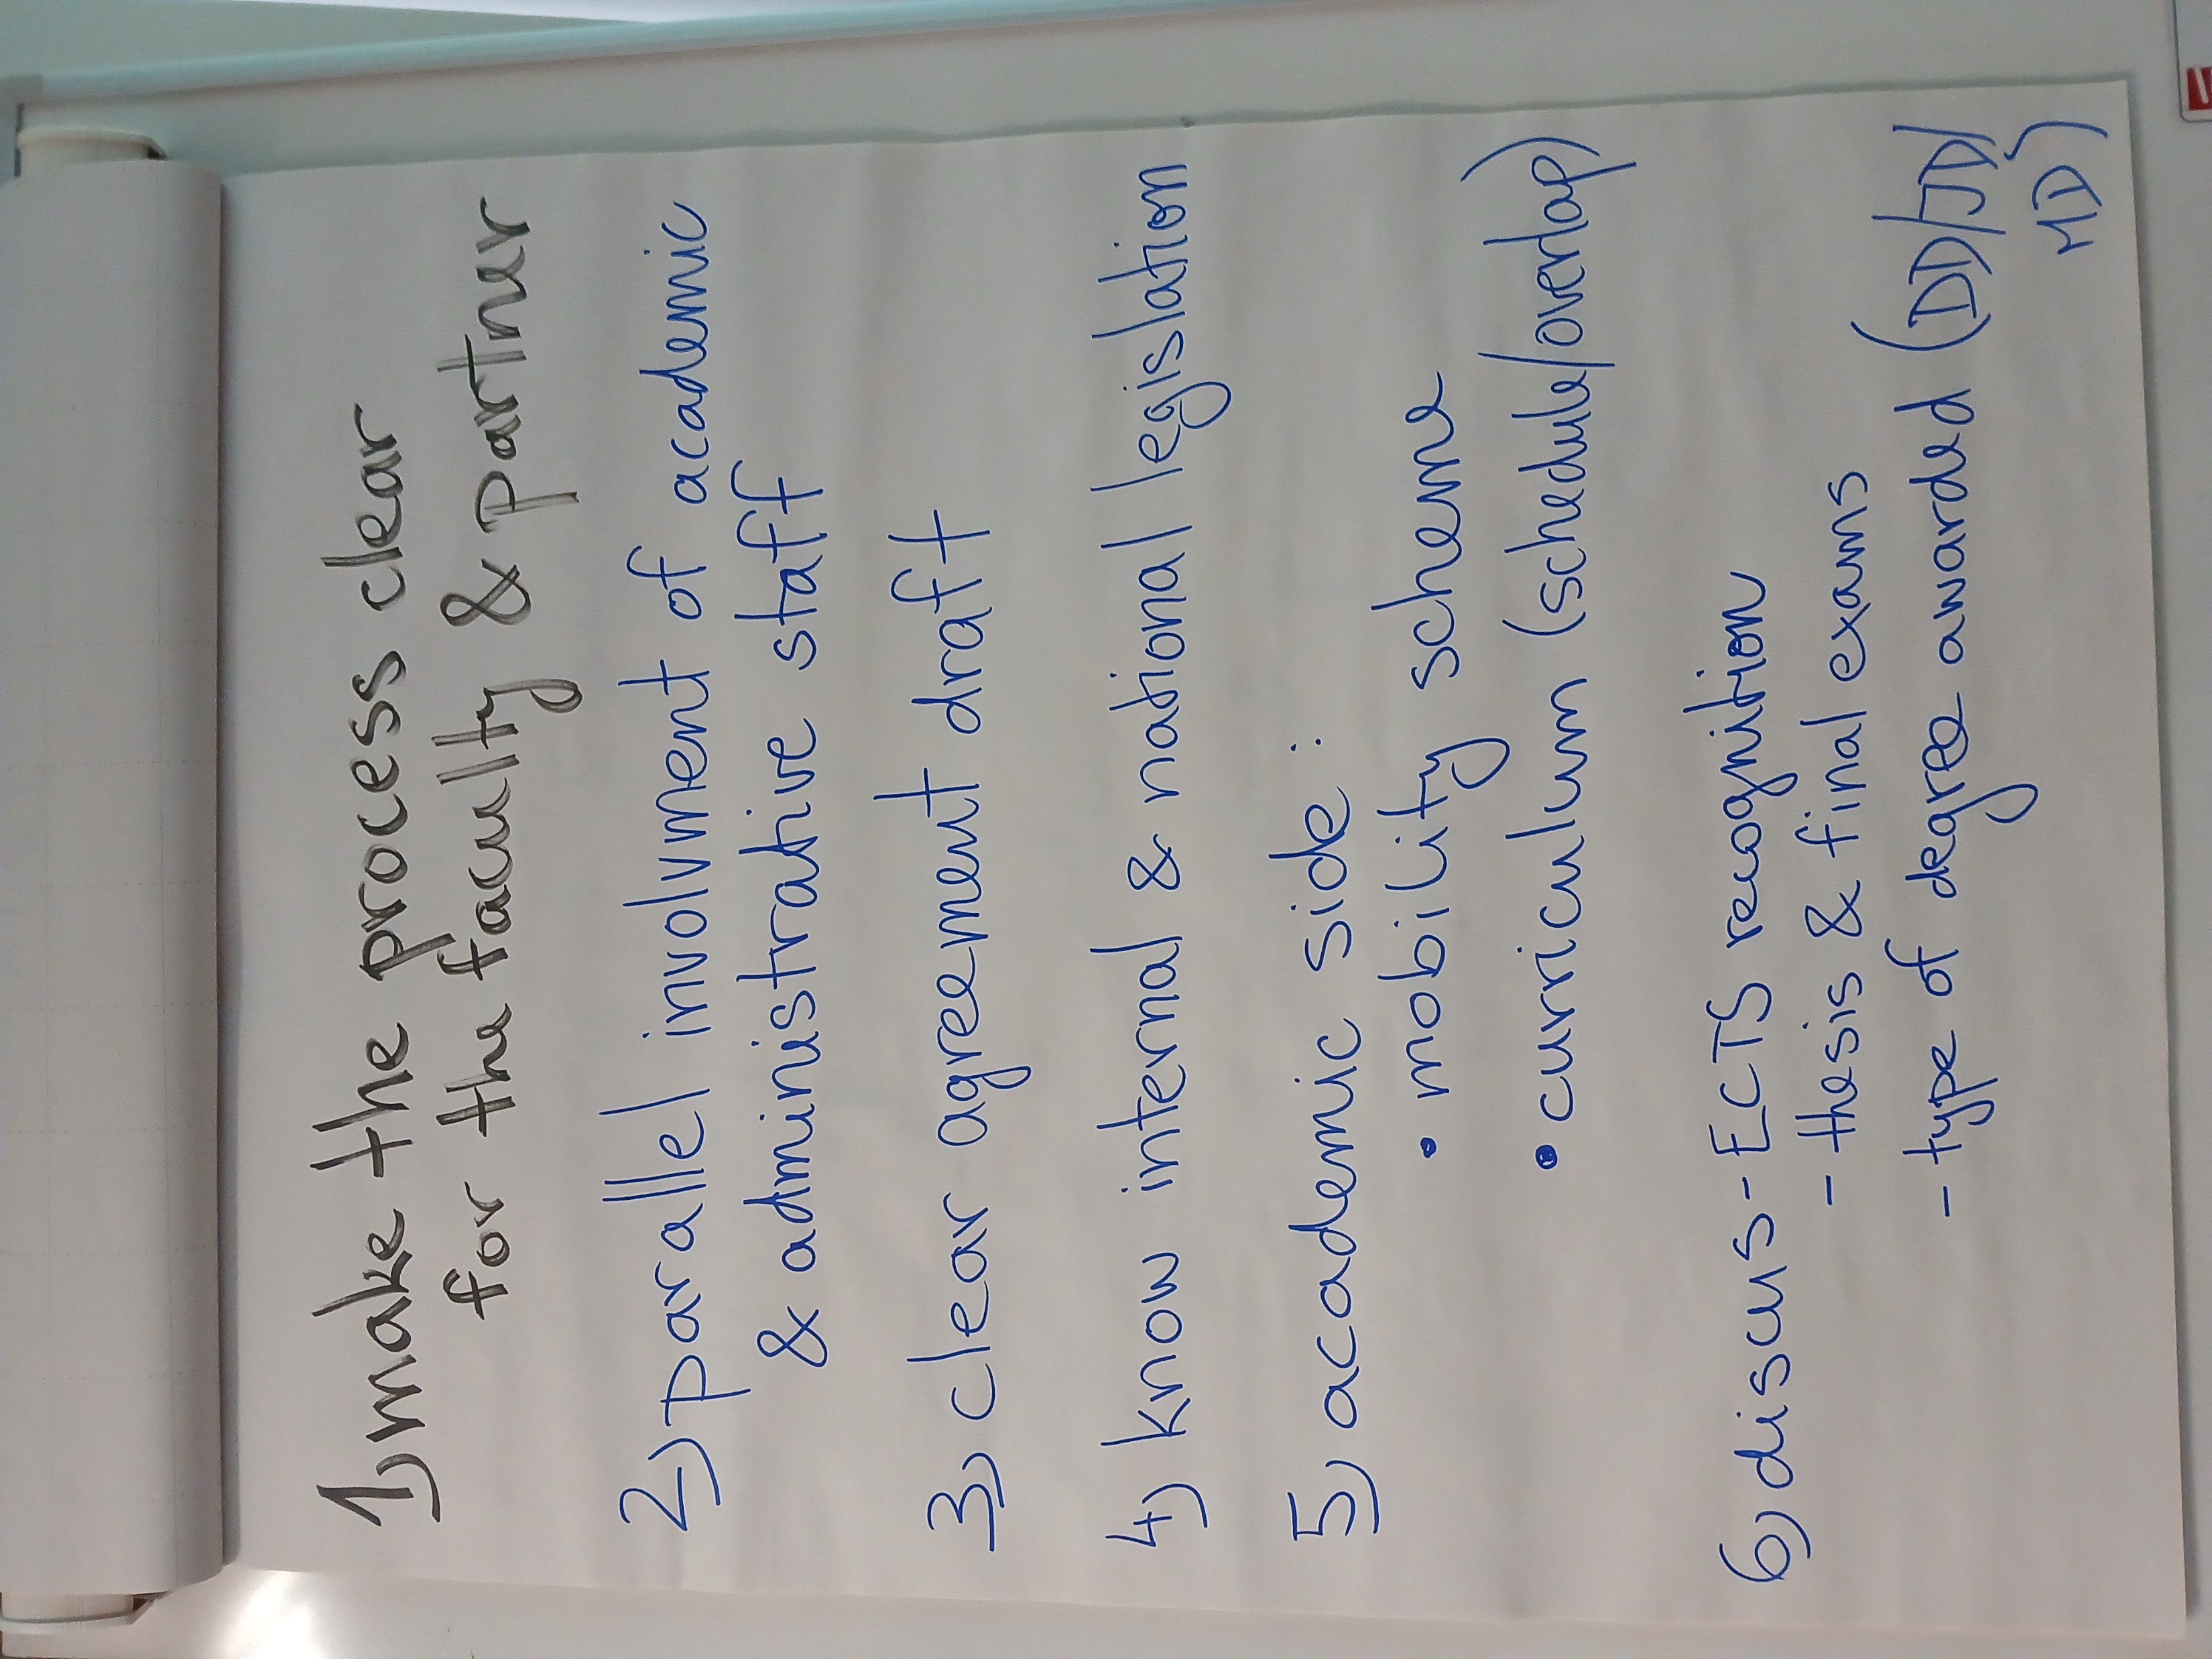 1) make the process clear
for the faculty & partner
2) parallel involvment of academic
& administrative staff
3) clear agreement draft
4) know internal & national legislation
5) academic side:
• mobility scheme
• curriculum (schedule/overlap)
6) discus - ECTS recognition
- thesis & final exams
- type of degree awarded (DD/JD/
MD)